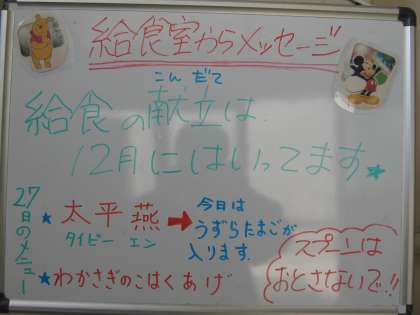 給食室からメッセージ
こん だて
給食の献立は
12月にはいってます
27日のメニュー
★太平燕➡今日は
タイピー エン
うずらたまごが
入ります.
★わかさぎのこはくあげ
スプーンは
おとさないで!!